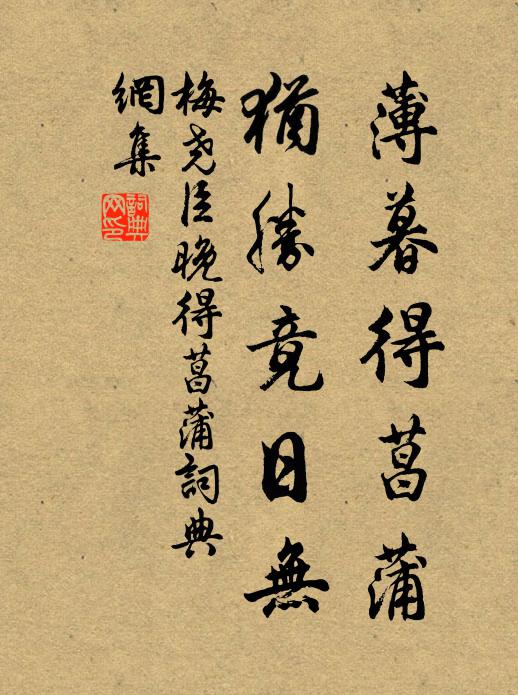 薄暮得菖蒲
猶勝竟日無
梅堯臣晚得菖蒲詞典
網集
詞典網印